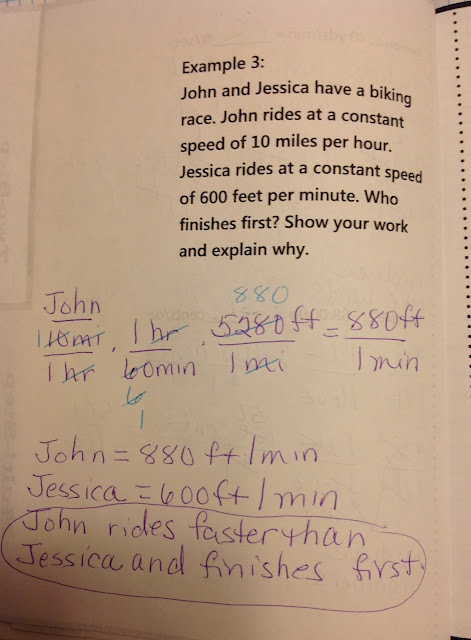 Example 3:
John and Jessica have a biking
race. John rides at a constant
speed of 10 miles per hour.
Jessica rides at a constant speed
of 600 feet per minute. Who
finishes first? Show your work
and explain why.
John
880
1 10mi · 1 hr · 5280ft = 880ft
1 hr 60min 1 mi 1 min
6
1
John = 880 ft / min
Jessica = 600ft / min
John rides faster than
Jessica and finishes first.